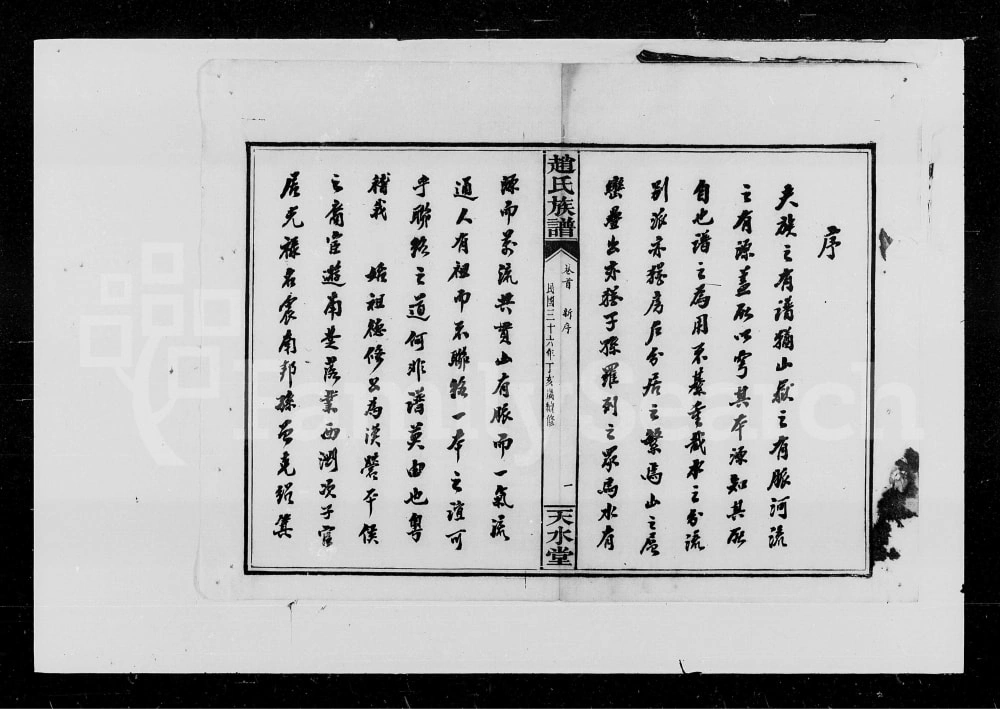 序
夫族之有譜猶山嶽之有脈河流
之有源蓋所以穹其本源知其所
自也譜之為用不綦重哉水之分流
別派亦猶房戶分居之繁焉山之層
巒疊出亦猶子孫羅列之眾焉水有
趙氏族譜
卷首 新序
民國三十六年丁亥歲續修
一
天水堂
源而萬流共貫山有脈而一氣流
通人有祖而不聯絡一本之誼可
乎聯絡之道何非譜莫由也粵
稽我 始祖德修公為漢營平侯
之裔宦遊南遂落業西澗次子官
居光祿名震南邦孫曾克紹箕
FamilySearch